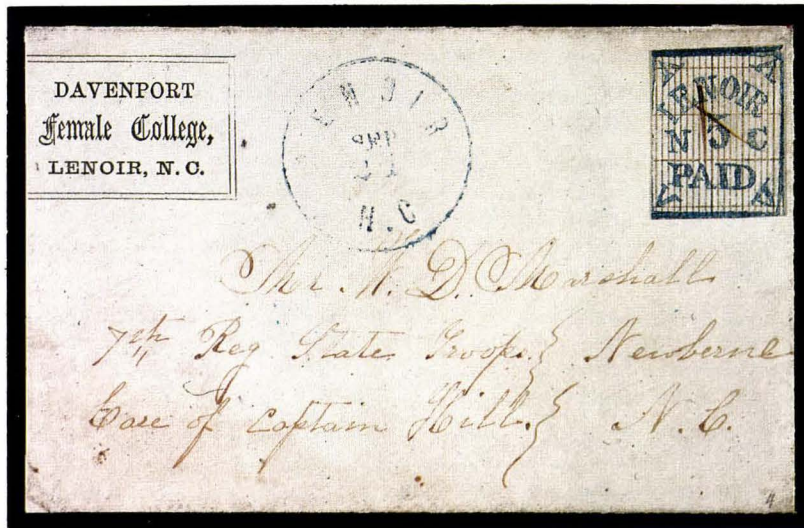 DAVENPORT
Female College,
LENOIR, N. C.
LENOIR
SEP
N.C
LENOIR
N 5 C
PAID
Mr. W. D. Marshall
7th Reg State Troops } Newberne
Care of Captain Hill } N. C.
4